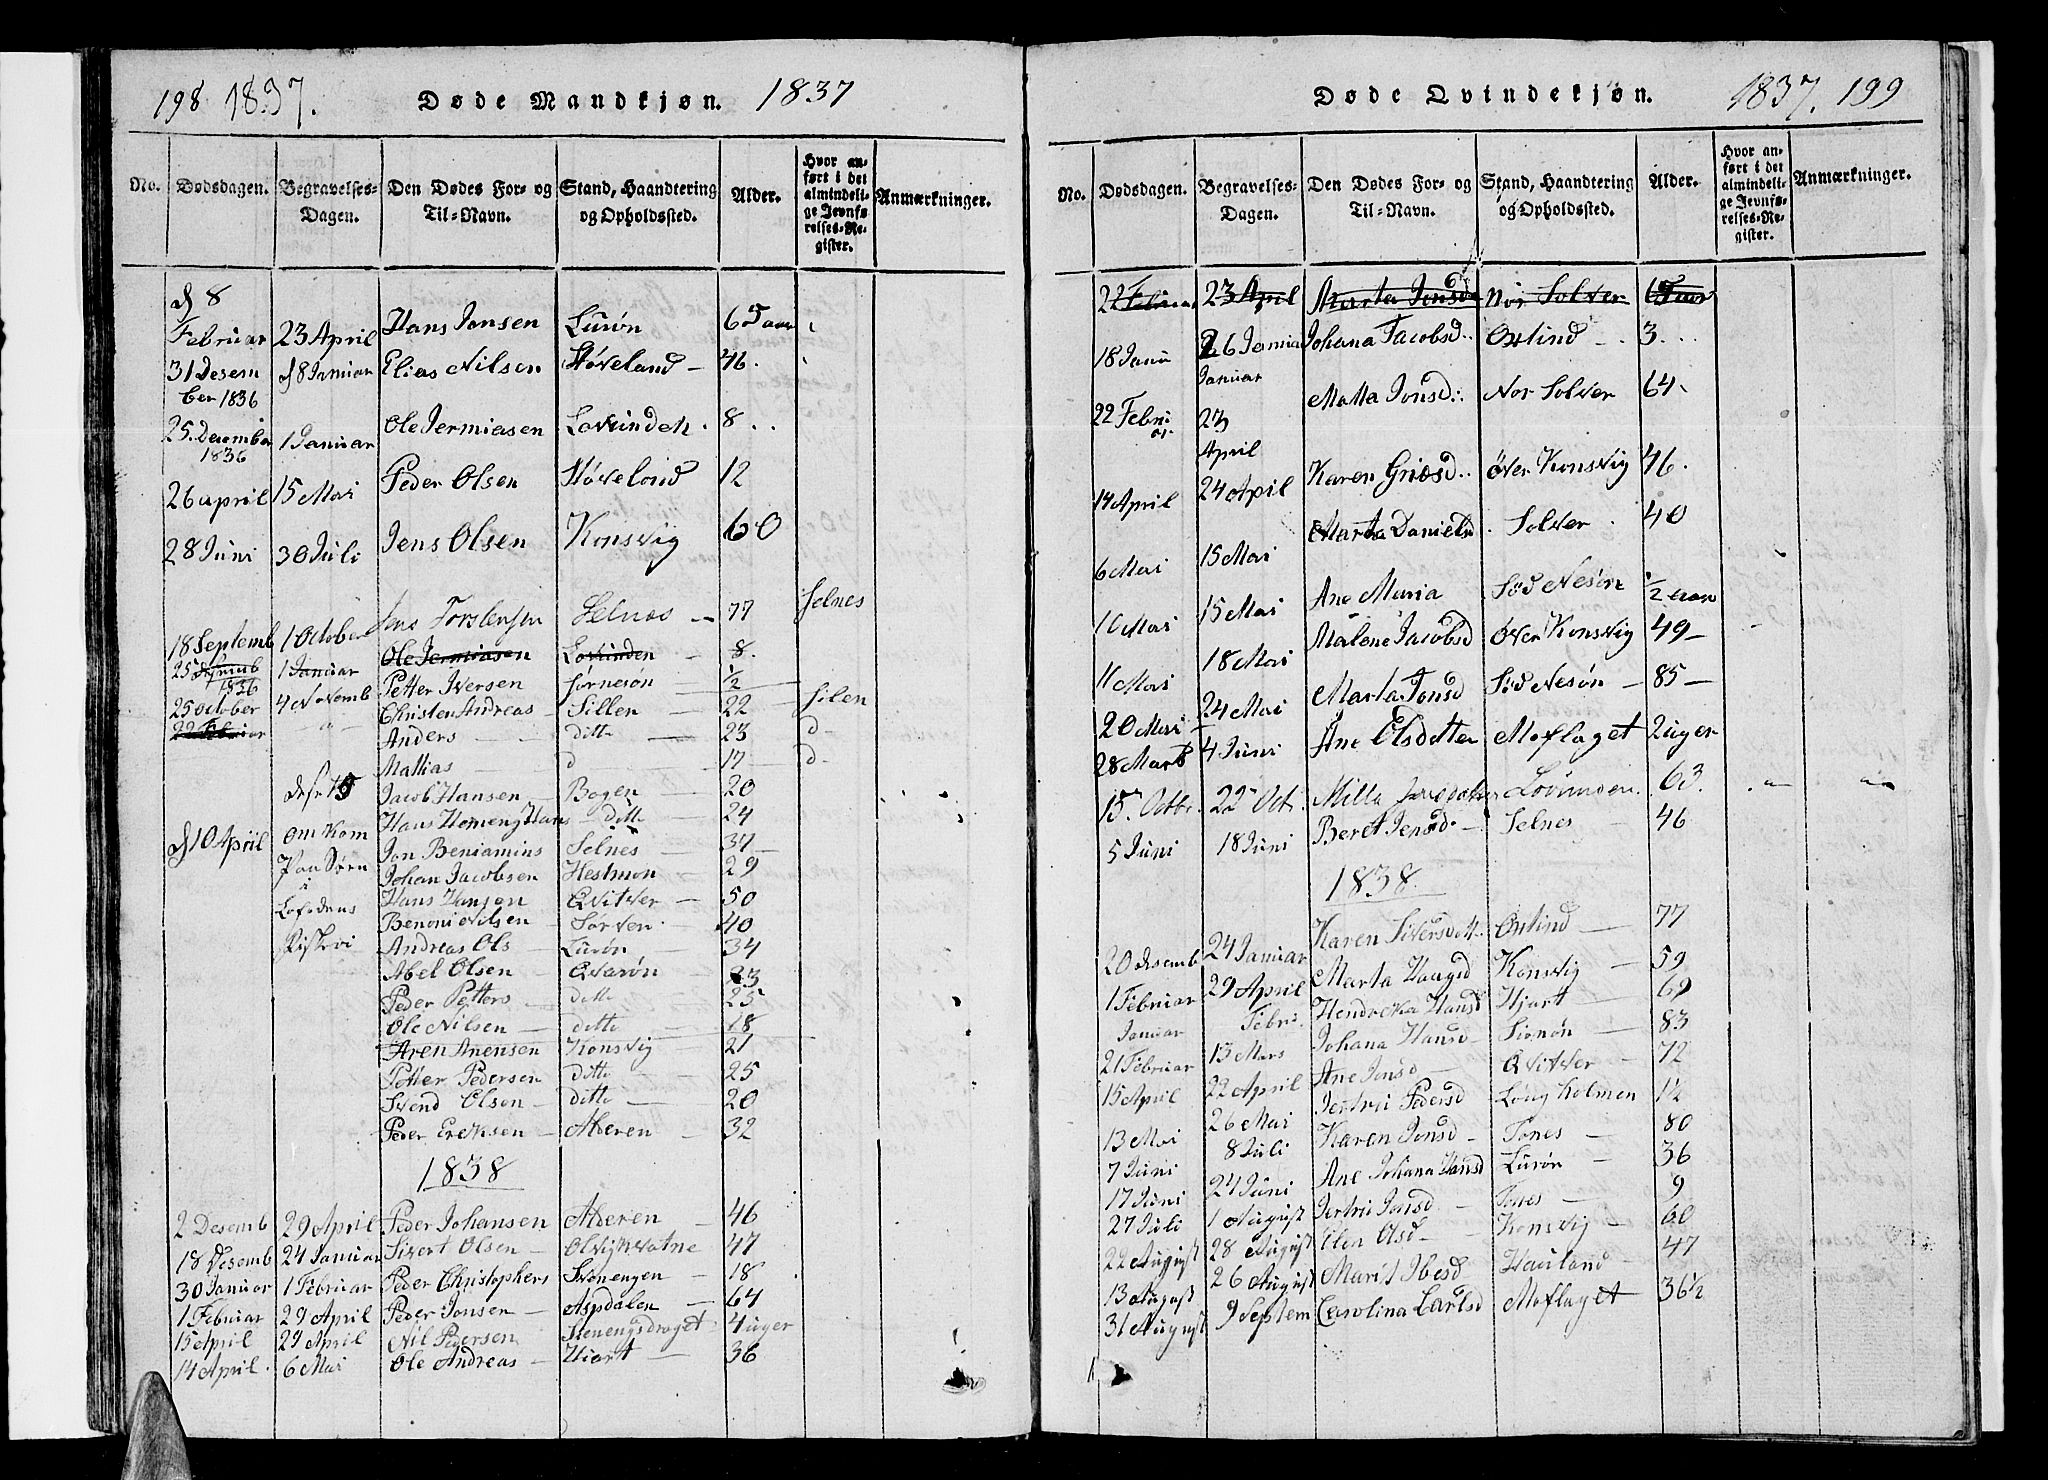 198 1837. Døde Mandkjøn. 1837
No. Dødsdagen. Begravelses-Dagen. Den Dødes For- og Til-Navn. Stand, Haandtering og Opholdssted. Alder. Hvor anført i det almindelige Jevnførelses-Register. Anmærkninger.
d 8 Februar 23 April Hans Jonsen Lurøn 65 aar
31 Desember 1836 d 8 Januar Elias Nilsen Støveland 46.
25. Decembr 1836 1 Januar Ole Jermiasen Lovunden. 8..
26 april 15 Mai Peder Olsen Støvelond 12
28 Juni 30 Juli Jens Olsen Konsvig 60
18 Septemb 1 October Jens Torstensen Selnæs 77 Selnes
25 1836 1 Januar Ole Jermiasen Lovunden 8.
25 October 4 Novemb Petter Iversen Sørnesøn ½
22 Februar - " - Christen Andreas Sillen 22 Silen
Anders ditto 23 d-
Mattias d 17 d-
Jacob Hansen Bogen 20
Hans Hemengs Hans ditto 24
d 10 April omkom Jon Beniamins Selnes 34
Paa Sørn Johan Jacobsen Hestmon 29
i Hans Hansen Qvitver 50
Lofodens Benoni Nilsen Sørver. 40
Fiskeri Andreas Ols Lurøn 34
Abel Olsen Qvarøn 23
Peder Petters ditto 25
Ole Nilsen ditto 18
Aren Anensen Konsvig 21
Petter Pedersen ditto 25
Svend Olsen ditto 20
Peder Ericksen Alderen 32
1838
2 Desemb 29 April Peder Johansen Alderen 46
18 Desemb 24 Januar Sivert Olsen Olvigsvatne 47
30 Januar 1 Februar Peder Christophers Stenengen 18
1 Februar 29 April Peder Jonsen Aspdalen 64
15 April 29 April Nil Pedersen Stenengsdraget 4 uger
14 April. 6 Mai Ole Andreas Hiart 36
Døde Qvindekjøn. 1837. 199
No. Dødsdagen. Begravelses-Dagen. Den Dødes For- og Til-Navn. Stand, Haandtering og Opholdssted. Alder. Hvor anført i det almindelige Jevnførelses-Register. Anmærkninger.
22 Februar 23 April Marta Jonsd Nor Solver
18 Janu 26 Januar Johana Jacobsd.. Oxtind 3...
22 Februar 23 April Matta Jonsd: Nor Solver 64.
14 April 24 April Karen Griesd.. Øver Konsvig 46.
6 Mai 15 Mai Marta Danielsd. Solver. 40
10 Mai 15 Mai Ane Maria Sød Nesøn ½ aar
11 Mai 18 Mai Malene Jacobsd Øver Konsvig 49
20 Mai 24 Mai Marta Jonsd Sød Nesøn 85
28 Marts 4 Juni Ane Elsdatter Moflaget 2 uger
15. Octbr. 22 Oct. Milla Lovunden. 63. " "
5 Juni 18 Juni Beret Jensd. Selnes 46
1838.
20 desemb 24 Januar Karen Siversdatt. Oxtind 77
1 Februar 29 April Marta Haagsd Konsvig 59
Januar Febru. Hendreka Hansd Hjart 69
21 Februar 13 Mars Johana Hansd Sionøn 83
15 April 22 April Ane Jonsd Qvitver 72
13 Mai 26 Mai Jertru Pedersd Løng Holmen 1½
7 Juni 8 Juli Karen Jonsd Tones 80
17 Juni 24 Juni Ane Johana Hansd Lurøn 36
27 Juli 1 August Jertru Jonsd Tones 9
22 August 28 August Elen Olsd Konsvig 60
13 August 26 August Marit Ibesd Havland 47
31 August 9 Septem Carolina Larlsd Moflaget 36½